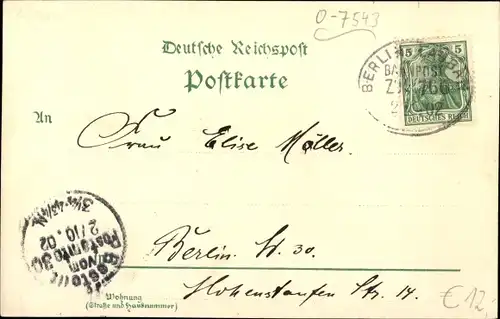 0-7543
Deutsche Reichspost
Postkarte
An
BERLIN
BAHNPOST
5 5
Z. 766
2 02
DEUTSCHES REICH
Frau Elise Möller.
Bestellt
vom
Postamte 30
2/10.02
Berlin W. 30.
Hohenstaufen Str. 14.
Wohnung
(Straße und Hausnummer)
€12